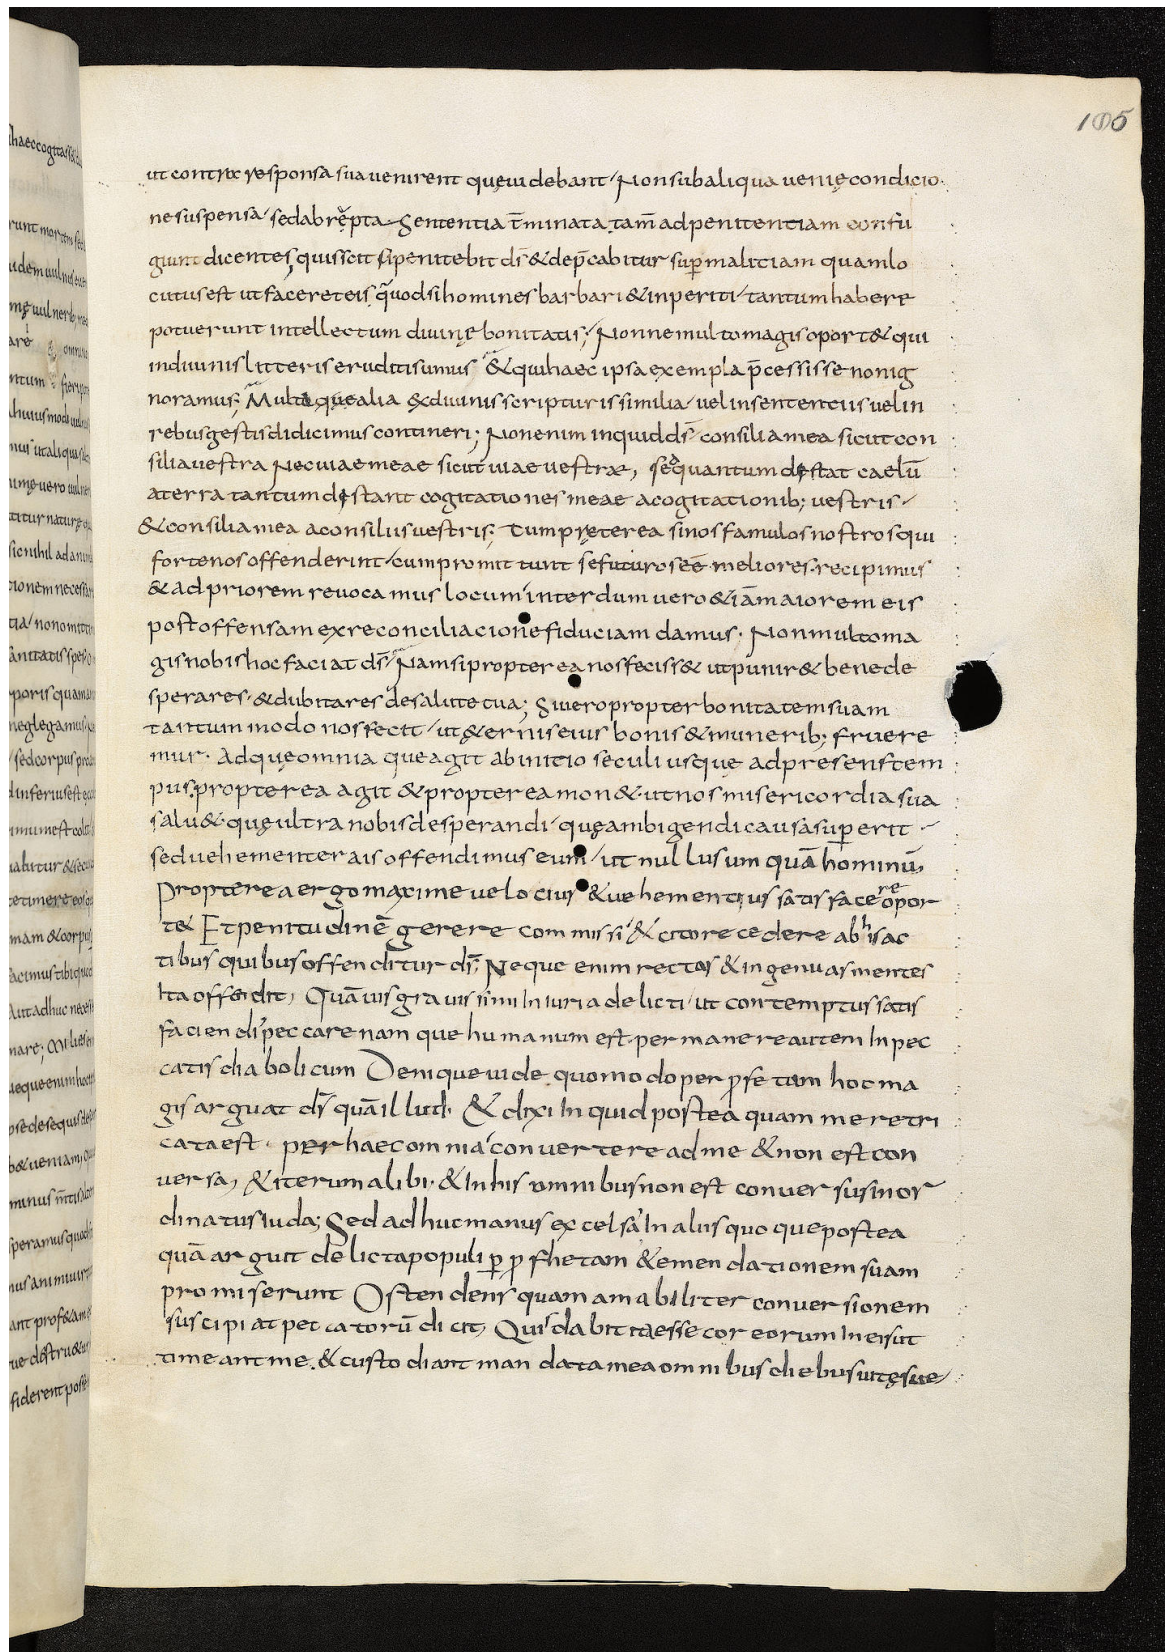 105
ut contra responsa sua venirent quęvidebant Non subaliqua venię condicio
ne suspensa sed abrępta Sententia t̄minata tam̄ ad penitentiam confu
giunt dicentes, quis scit si penitebit dš & dep̄cabitur sup malitiam quam lo
cutus est ut faceret eis, quod si homines barbari & inperiti tantum habere
potuerunt intellectum divinę bonitatis; Nonne multo magis oport& qui
in divinis litteris eruditi sumus & qui haec ipsa exempla p̄cessisse non ig
noramus; Multa quę alia & divinis scripturis similia vel in sententiis vel in
rebus gestis didicimus contineri; Non enim inquid dš consilia mea sicut con
silia vestra Nec viae meae sicut viae vestrae, sed quantum distat caelū
a terra tantum distant cogitationes meae a cogitationib; vestris
& consilia mea a consiliis vestris; Tum pręterea si nos famulos nostros qui
forte nos offenderint cum promittunt se futuros eē meliores recipimus
& ad priorem revocamus locum interdum vero & iā maiorem eis
post offensam ex reconciliacione fiduciam damus. Non multo ma
gis nobis hoc faciat dš Nam si propterea nos feciss& ut punir& bene de
sperares & dubitares de salute tua; Si vero propter bonitatem suam
tantum modo nos fecit ut & ernis eius bonis & munerib; fruere
mur. Adque omnia que agit ab initio seculi usque ad presens tem
pus propterea agit & propterea mon& ut nos misericordia sua
salv& quę ultra nobis desperandi quę ambigendi causa sup erit
sed vehementer ais offendimus eum ut nullus um quā hominū
Propterea ergo maxime velocius & vehementius satis facere opor
t& Et penitudinē gerere commissi & citore cedere ab his ac
tibus quibus offenditur dš; Neque enim rectas & ingenuas mentes
Ita offendit, Quāvis gravissimi Iniuria delicti ut contemptus satis
faciendi peccare nam que humanum est permanere autem In pec
catis diabolicum Denique vide quomodo per p̄fetam hoc ma
gis arguat dš quā illud. & dixi Inquid postea quam meretri
cata est. per haec omnia convertere ad me & non est con
versa, & iterum alibi. & In his omnibus non est conversus inor
dinatus Iuda; Sed adhuc manus excelsa In aliis quoque postea
quā arguit delicta populi p pfhetam & emendationem suam
promiserunt Ostendens quam amabiliter conversionem
suscipiat peccatorū dicit, Quis dabit ita esse cor eorum In eis ut
timeant me & custodiant mandata mea omnibus diebus vitę suę